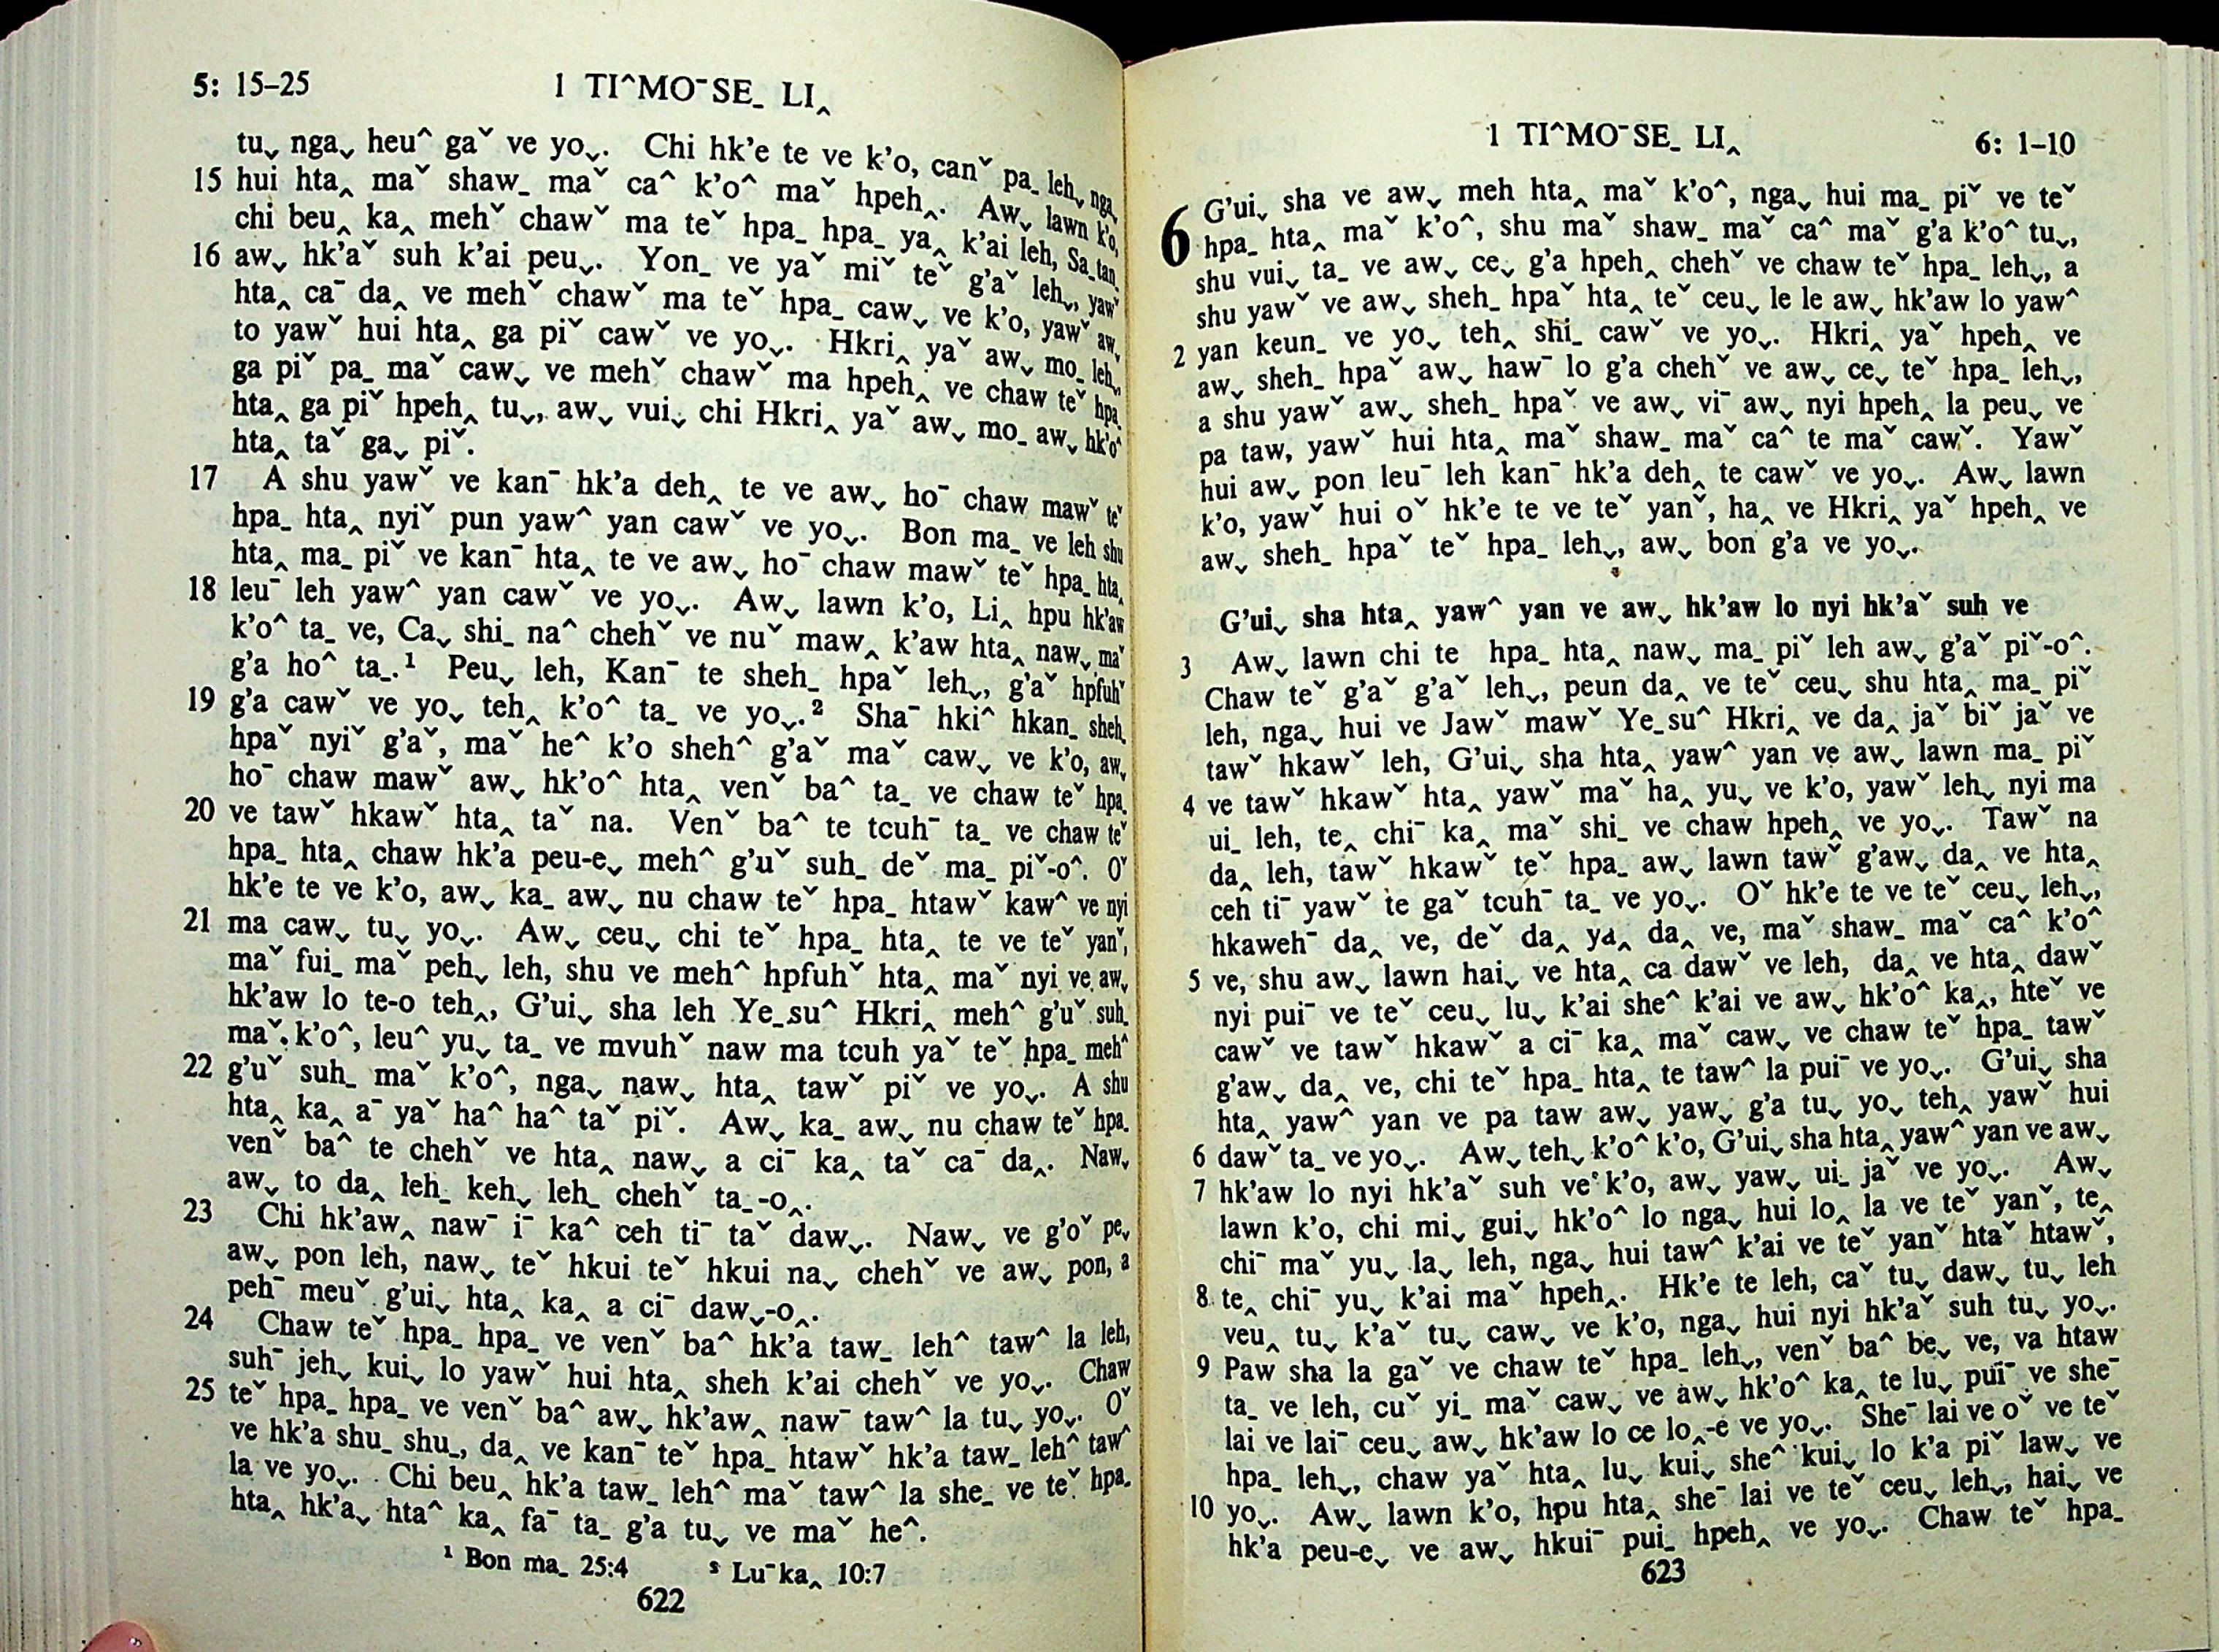 5: 15–25
1 TI^MOˉSE_ LI‸
tuˬ ngaˬ heu^ gaˇ ve yoˬ. Chi hk’e te ve k’o, canˇ pa_ lehˬ nga
15 hui hta‸ maˇ shaw_ maˇ ca^ k’o^ maˇ hpeh‸. Awˬ lawn k’o,
chi beu‸ ka‸ mehˇ chawˇ ma teˇ hpa_ hpa_ ya‸ k’ai leh, Sa_tan
16 awˬ hk’aˇ suh k’ai peuˬ. Yon_ ve yaˇ miˇ teˇ g’aˇ lehˬ, yawˇ
hta‸ caˉ da‸ ve mehˇ chawˇ ma teˇ hpa_ cawˬ ve k’o, yawˇ awˬ
to yawˇ hui hta‸ ga piˇ cawˇ ve yoˬ. Hkri‸ yaˇ awˬ mo_ lehˬ
ga piˇ pa_ maˇ cawˬ ve mehˇ chawˇ ma hpeh‸ ve chaw teˇ hpa_
hta‸ ga piˇ hpeh‸ tuˬ, awˬ vuiˬ chi Hkri‸ yaˇ awˬ mo_ awˬ hk’o^
hta‸ taˇ gaˬ piˇ.
17 A shu yawˇ ve kanˉ hk’a deh‸ te ve awˬ hoˉ chaw mawˇ teˇ
hpa_ hta‸ nyiˇ pun yaw^ yan cawˇ ve yoˬ. Bon ma_ ve leh shu
hta‸ ma_ piˇ ve kanˉ hta‸ te ve awˬ hoˉ chaw mawˇ teˇ hpa_ hta‸
18 leuˉ leh yaw^ yan cawˇ ve yoˬ. Awˬ lawn k’o, Li‸ hpu hk’aw
k’o^ ta_ ve, Caˬ shi_ na^ chehˇ ve nuˇ maw‸ k’aw hta‸ nawˬ maˇ
g’a ho^ ta_.¹ Peuˬ leh, Kanˉ te sheh_ hpaˇ lehˬ, g’aˇ hpfuhˇ
19 g’a cawˇ ve yoˬ teh‸ k’o^ ta_ ve yoˬ.² Shaˉ hki^ hkan_ sheh_
hpaˇ nyiˇ g’aˇ, maˇ he^ k’o sheh^ g’aˇ maˇ cawˬ ve k’o, awˬ
hoˉ chaw mawˇ awˬ hk’o^ hta‸ venˇ ba^ ta_ ve chaw teˇ hpa_
20 ve tawˇ hkawˇ hta‸ taˇ na. Venˇ ba^ te tcuhˉ ta_ ve chaw teˇ
hpa_ hta‸ chaw hk’a peu-eˬ meh^ g’uˇ suh_ deˇ ma_ piˇ-o^. Oˇ
hk’e te ve k’o, awˬ ka_ awˬ nu chaw teˇ hpa_ htawˇ kaw^ ve nyi
21 ma cawˬ tuˬ yoˬ. Awˬ ceuˬ chi teˇ hpa_ hta‸ te ve teˇ yanˇ,
maˇ fui_ maˇ pehˬ leh, shu ve meh^ hpfuhˇ hta‸ maˇ nyi ve awˬ
hk’aw lo te-o teh‸, G’uiˬ sha leh Ye_su^ Hkri‸ meh^ g’uˇ suh_
maˇ k’o^, leu^ yuˬ ta_ ve mvuhˇ naw ma tcuh yaˇ teˇ hpa_ meh^
22 g’uˇ suh_ maˇ k’o^, ngaˬ nawˬ hta‸ tawˇ piˇ ve yoˬ. A shu
hta‸ ka‸ aˉ yaˇ ha^ ha^ taˇ piˇ. Awˬ ka_ awˬ nu chaw teˇ hpa_
venˇ ba^ te chehˇ ve hta‸ nawˬ a ciˉ ka‸ taˇ caˉ da‸. Nawˬ
awˬ to da‸ leh_ kehˬ leh_ chehˇ ta_-o‸.
23 Chi hk’aw‸ nawˉ iˉ ka^ ceh tiˉ taˇ dawˬ. Nawˬ ve g’oˇ peˬ
awˬ pon leh, nawˬ teˇ hkui teˇ hkui naˬ chehˇ ve awˬ pon, a
pehˉ meuˇ g’uiˬ hta‸ ka‸ a ciˉ dawˬ-o‸.
24 Chaw teˇ hpa_ hpa_ ve venˇ ba^ hk’a taw_ leh^ taw^ la leh,
suhˉ jehˬ kuiˬ lo yawˇ hui hta‸ sheh k’ai chehˇ ve yoˬ. Chaw
25 teˇ hpa_ hpa_ ve venˇ ba^ awˬ hk’aw‸ nawˉ taw^ la tuˬ yoˬ. Oˇ
ve hk’a shu_ shu_, da‸ ve kanˉ teˇ hpa_ htawˇ hk’a taw_ leh^ taw^
la ve yoˬ. Chi beu‸ hk’a taw_ leh^ maˇ taw^ la she_ ve teˇ hpa_
hta‸ hk’aˬ hta^ ka‸ faˉ ta_ g’a tuˬ ve maˇ he^.
¹ Bon ma_ 25:4 ² Luˉka‸ 10:7
622
1 TI^MOˉSE_ LI‸
6: 1–10
6 G’uiˬ sha ve awˬ meh hta‸ maˇ k’o^, ngaˬ hui ma_ piˇ ve teˇ
hpa_ hta‸ maˇ k’o^, shu maˇ shaw_ maˇ ca^ maˇ g’a k’o^ tuˬ,
shu vuiˬ ta_ ve awˬ ceˬ g’a hpeh‸ chehˇ ve chaw teˇ hpa_ lehˬ, a
shu yawˇ ve awˬ sheh_ hpaˇ hta‸ teˇ ceuˬ le le awˬ hk’aw lo yaw^
2 yan keun_ ve yoˬ teh‸ shi_ cawˇ ve yoˬ. Hkri‸ yaˇ hpeh‸ ve
awˬ sheh_ hpaˇ awˬ hawˉ lo g’a chehˇ ve awˬ ceˬ teˇ hpa_ lehˬ,
a shu yawˇ awˬ sheh_ hpaˇ ve awˬ viˉ awˬ nyi hpeh‸ la peuˬ ve
pa taw, yawˇ hui hta‸ maˇ shaw_ maˇ ca^ te maˇ cawˇ. Yawˇ
hui awˬ pon leuˉ leh kanˉ hk’a deh‸ te cawˇ ve yoˬ. Awˬ lawn
k’o, yawˇ hui oˇ hk’e te ve teˇ yanˇ, ha‸ ve Hkri‸ yaˇ hpeh‸ ve
awˬ sheh_ hpaˇ teˇ hpa_ lehˬ, awˬ bon g’a ve yoˬ.
G’uiˬ sha hta‸ yaw^ yan ve awˬ hk’aw lo nyi hk’aˇ suh ve
3 Awˬ lawn chi te hpa_ hta‸ nawˬ ma_ piˇ leh awˬ g’aˇ piˇ-o^.
Chaw teˇ g’aˇ g’aˇ lehˬ, peun da‸ ve teˇ ceuˬ shu hta‸ ma_ piˇ
leh, ngaˬ hui ve Jawˇ mawˇ Ye_su^ Hkri‸ ve da‸ jaˇ biˇ jaˇ ve
tawˇ hkawˇ leh, G’uiˬ sha hta‸ yaw^ yan ve awˬ lawn ma_ piˇ
4 ve tawˇ hkawˇ hta‸ yawˇ maˇ ha‸ yuˬ ve k’o, yawˇ lehˬ nyi ma
ui_ leh, te‸ chiˉ ka‸ maˇ shi_ ve chaw hpeh‸ ve yoˬ. Tawˇ na
da‸ leh, tawˇ hkawˇ teˇ hpa_ awˬ lawn tawˇ g’awˬ da‸ ve hta‸
ceh tiˉ yawˇ te gaˇ tcuhˉ ta_ ve yoˬ. Oˇ hk’e te ve teˇ ceuˬ lehˬ,
hkawehˉ da‸ ve, deˇ da‸ ya‸ da‸ ve, maˇ shaw_ maˇ ca^ k’o^
5 ve, shu awˬ lawn haiˬ ve hta‸ ca dawˇ ve leh, da‸ ve hta‸ dawˇ
nyi puiˉ ve teˇ ceuˬ luˬ k’ai she^ k’ai ve awˬ hk’o^ ka‸, hteˇ ve
cawˇ ve tawˇ hkawˇ a ciˉ ka‸ maˇ cawˬ ve chaw teˇ hpa_ tawˇ
g’awˬ da‸ ve, chi teˇ hpa_ hta‸ te taw^ la puiˉ ve yoˬ. G’uiˬ sha
hta‸ yaw^ yan ve pa taw awˬ yawˬ g’a tuˬ yoˬ teh‸ yawˇ hui
6 dawˇ ta_ ve yoˬ. Awˬ tehˬ k’o^ k’o, G’uiˬ sha hta‸ yaw^ yan ve awˬ
7 hk’aw lo nyi hk’aˇ suh ve k’o, awˬ yawˬ ui_ jaˇ ve yoˬ. Awˬ
lawn k’o, chi miˬ guiˬ hk’o^ lo ngaˬ hui lo‸ la ve teˇ yanˇ, te‸
chiˉ maˇ yuˬ laˬ leh, ngaˬ hui taw^ k’ai ve teˇ yanˇ htaˇ htawˇ,
8 te‸ chiˉ yuˬ k’ai maˇ hpeh‸. Hk’e te leh, caˇ tuˬ dawˬ tuˬ leh
veu‸ tuˬ k’aˇ tuˬ cawˬ ve k’o, ngaˬ hui nyi hk’aˇ suh tuˬ yoˬ.
9 Paw sha la gaˇ ve chaw teˇ hpa_ lehˬ, venˇ ba^ beˬ ve, va htaw
ta_ ve leh, cuˇ yi_ maˇ cawˬ ve awˬ hk’o^ ka‸ te luˬ puiˉ ve sheˉ
lai ve laiˉ ceuˬ awˬ hk’aw lo ce lo‸-e ve yoˬ. Sheˉ lai ve oˇ ve teˇ
hpa_ lehˬ, chaw yaˇ hta‸ luˬ kuiˬ she^ kuiˬ lo k’a piˇ lawˬ ve
10 yoˬ. Awˬ lawn k’o, hpu hta‸ sheˉ lai ve teˇ ceuˬ lehˬ, haiˬ ve
hk’a peu-eˬ ve awˬ hkuiˉ pui_ hpeh‸ ve yoˬ. Chaw teˇ hpa_
623